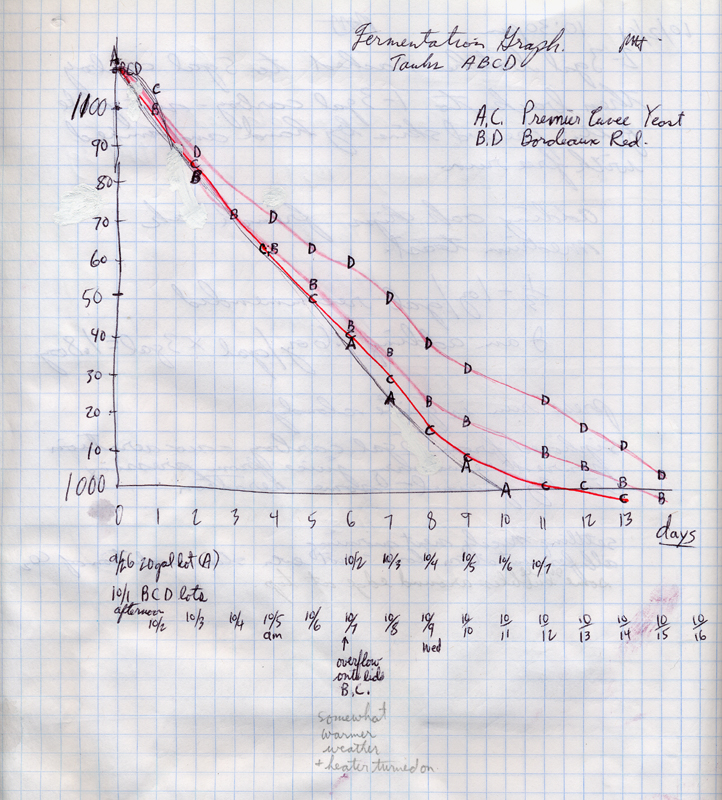 Fermentation Graph.
Tanks ABCD
A,C. Premier Cuvee Yeast
B,D Bordeaux Red.
A
ABCD
C
1100
B
90
D
C
B
80
70
B
D
60
C,B
D
D
50
B
C
D
40
B
C
A
B
D
30
C
D
20
A
B
C
B
D
D
10
C
A
B
B
D
D
1000
A
C
C
B
C
B
0 1 2 3 4 5 6 7 8 9 10 11 12 13 days
9/26 20 gal lot (A) 10/2 10/3 10/4 10/5 10/6 10/7
10/1 BCD lots
afternoon
10/2 10/3 10/4 10/5 10/6 10/7 10/8 10/9 10/10 10/11 10/12 10/13 10/14 10/15 10/16
am wed
↑
overflow
onto lids
B,C.
somewhat
warmer
weather
+ heater turned on